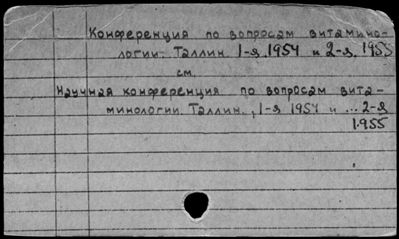 Конференция по вопросам витамино-
логии. Таллин. 1-я, 1954 и 2-я, 1955
см.
Научная конференция по вопросам вита-
минологии. Таллин., 1-я 1954 и ... 2-я
1955